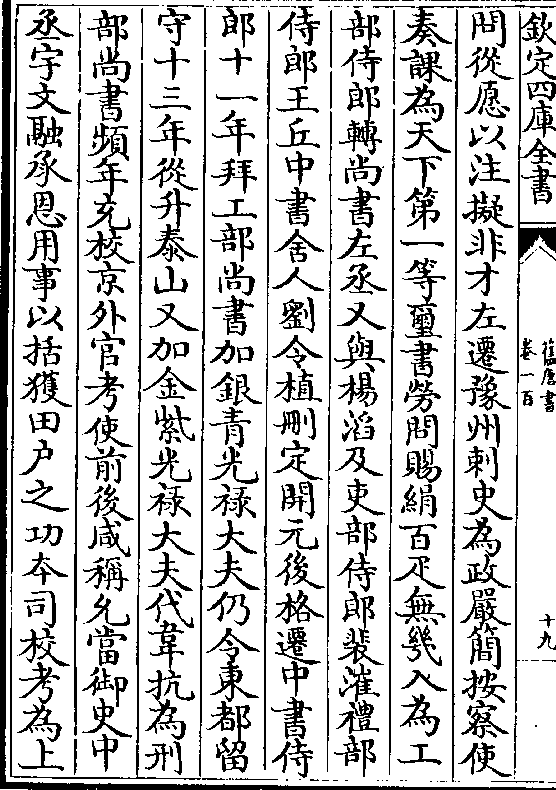 欽定四庫全書
舊唐書
卷一百
十九
問從愿以注擬非才左遷豫州刺史為政嚴簡按察使
奏課為天下第一等璽書勞問賜絹百疋無幾入為工
部侍郎轉尚書左丞又與楊滔及吏部侍郎裴漼禮部
侍郎王丘中書舍人劉令植刪定開元後格遷中書侍
郎十一年拜工部尚書加銀青光禄大夫仍令東都留
守十三年從升泰山又加金紫光禄大夫代韋抗為刑
部尚書頻年充校京外官考使前後咸稱允當御史中
丞宇文融承恩用事以括獲田户之功本司校考為上